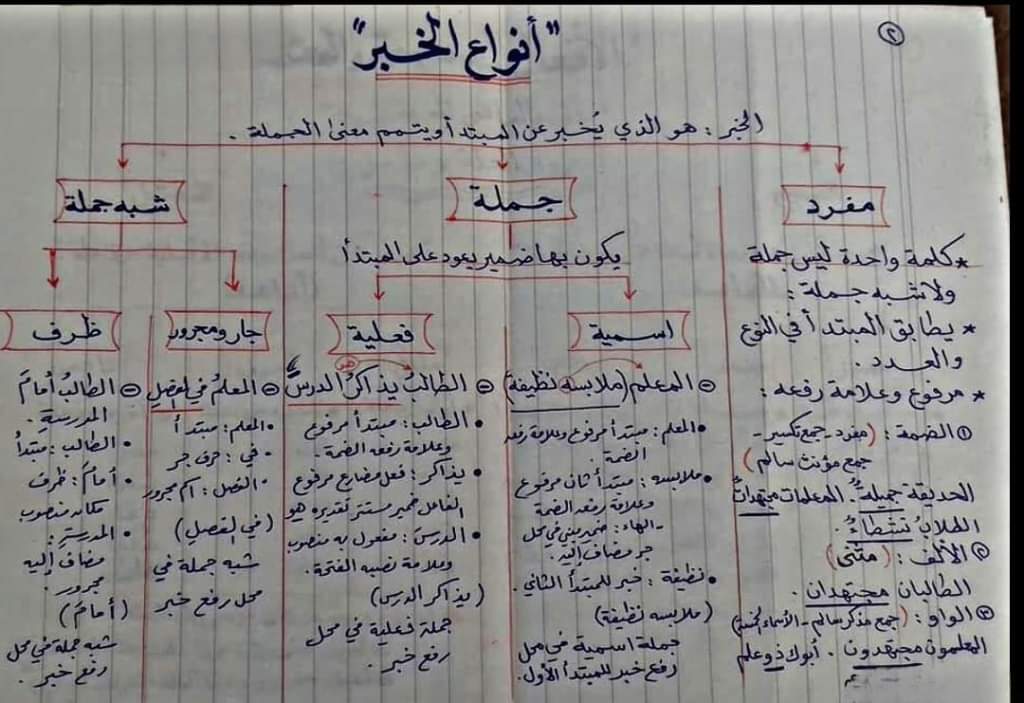 ٢
"أنواع الخبر"
الخبر : هو الذي يُخبر عن المبتدأ ويتمم معنى الجملة .
مفرد
* كلمة واحدة ليس جملة
ولا شبه جملة :
* يطابق المبتدأ في النوع
والعدد .
* مرفوع وعلامة رفعه :
① الضمة : (مفرد - جمع تكسير -
جمع مؤنث سالم)
الحديقة جميلةٌ . المعلمات مجتهداتٌ
الطلابُ نشطاءُ .
② الألف : (مثنى)
الطالبان مجتهدان .
③ الواو : (جمع مذكر سالم - الأسماء الخمسة)
المعلمون مجتهدون . أبوك ذو علم
جملة
يكون بها ضمير يعود على المبتدأ
اسمية
المعلم (ملابسه نظيفة)
• المعلم : مبتدأ مرفوع وعلامة رفعه
الضمة .
• ملابسه : مبتدأ ثان مرفوع
وعلامة رفعه الضمة
- الهاء : ضمير مبني في محل
جر مضاف إليه .
• نظيفة : خبر للمبتدأ الثاني .
(ملابسه نظيفة)
جملة اسمية في محل
رفع خبر للمبتدأ الأول .
فعلية
هو
الطالبُ يذاكرُ الدرسَ
• الطالب : مبتدأ مرفوع
وعلامة رفعه الضمة .
• يذاكر : فعل مضارع مرفوع
الفاعل ضمير مستتر تقديره هو
• الدرسَ : مفعول به منصوب
وعلامة نصبه الفتحة .
(يذاكر الدرس)
جملة فعلية في محل
رفع خبر .
شبه جملة
جار ومجرور
المعلمُ في الفصلِ
• المعلم : مبتدأ
• في : حرف جر
• الفصل : اسم مجرور
(في الفصل)
شبه جملة في
محل رفع خبر
ظرف
الطالبُ أمامَ
المدرسة .
• الطالب : مبتدأ
• أمامَ : ظرف
مكان منصوب
• المدرسةِ :
مضاف إليه
مجرور .
(أمامَ)
شبه جملة في محل
رفع خبر .